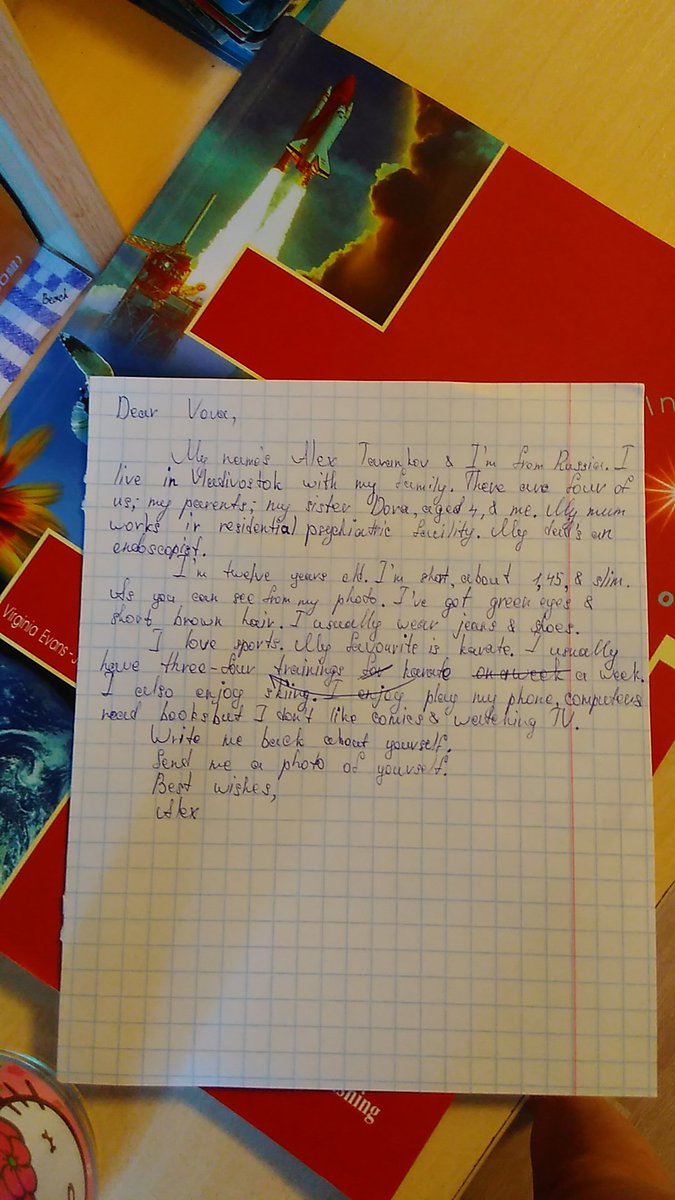 Beach
Virginia Evans - J
In
o
Dear Vova,
My name's Alex & I'm from Russia. I
live in Vladivostok with my family. There are four of
us; my parents; my sister Dora, aged 4, & me. My mum
works in residential psychiatric facility. My dad's an
endoscopist.
I'm twelve years old. I'm short, about 1,45, & slim.
As you can see from my photo. I've got green eyes &
short brown hair. I usually wear jeans & shoes.
I love sports. My favourite is karate. I usually
have three-four trainings for karate on a week a week.
I also enjoy skiing. I enjoy play my phone, computers
read books but I don't like comics & watching TV.
Write me back about yourself.
Send me a photo of yourself.
Best wishes,
Alex
shing